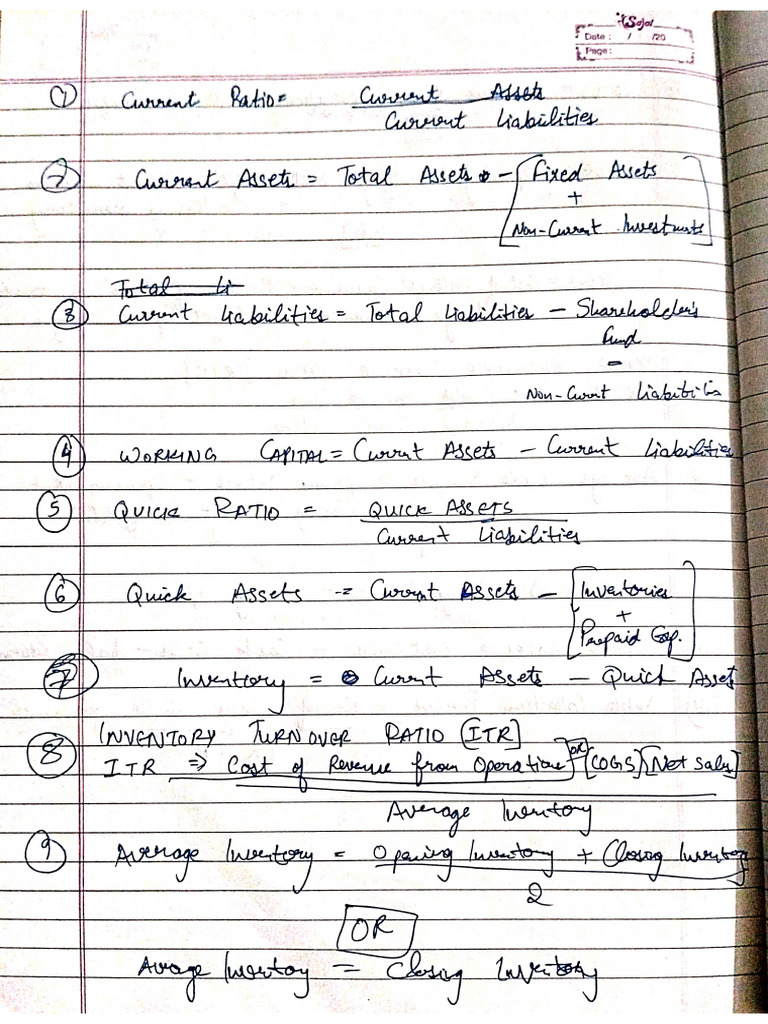 Sajal
Date : / /20
Page :
① Current Ratio = Current Assets
Current Liabilities
② Current Assets = Total Assets - [Fixed Assets
+
Non-Current Investments]
Total Li
③ Current Liabilities = Total Liabilities - Shareholder's
Fund
-
Non-Current Liabilities
④ WORKING CAPITAL = Current Assets - Current Liabilities
⑤ QUICK RATIO = QUICK ASSETS
Current Liabilities
⑥ Quick Assets = Current Assets - [Inventories
+
Prepaid Exp.]
⑦ Inventory = Current Assets - Quick Asset
⑧ INVENTORY TURNOVER RATIO [ITR]
ITR ⇒ Cost of Revenue from Operation] OR [COGS] [Net Sales]
Average Inventory
⑨ Average Inventory = Opening Inventory + Closing Inventory
2
OR
Average Inventory = Closing Inventory